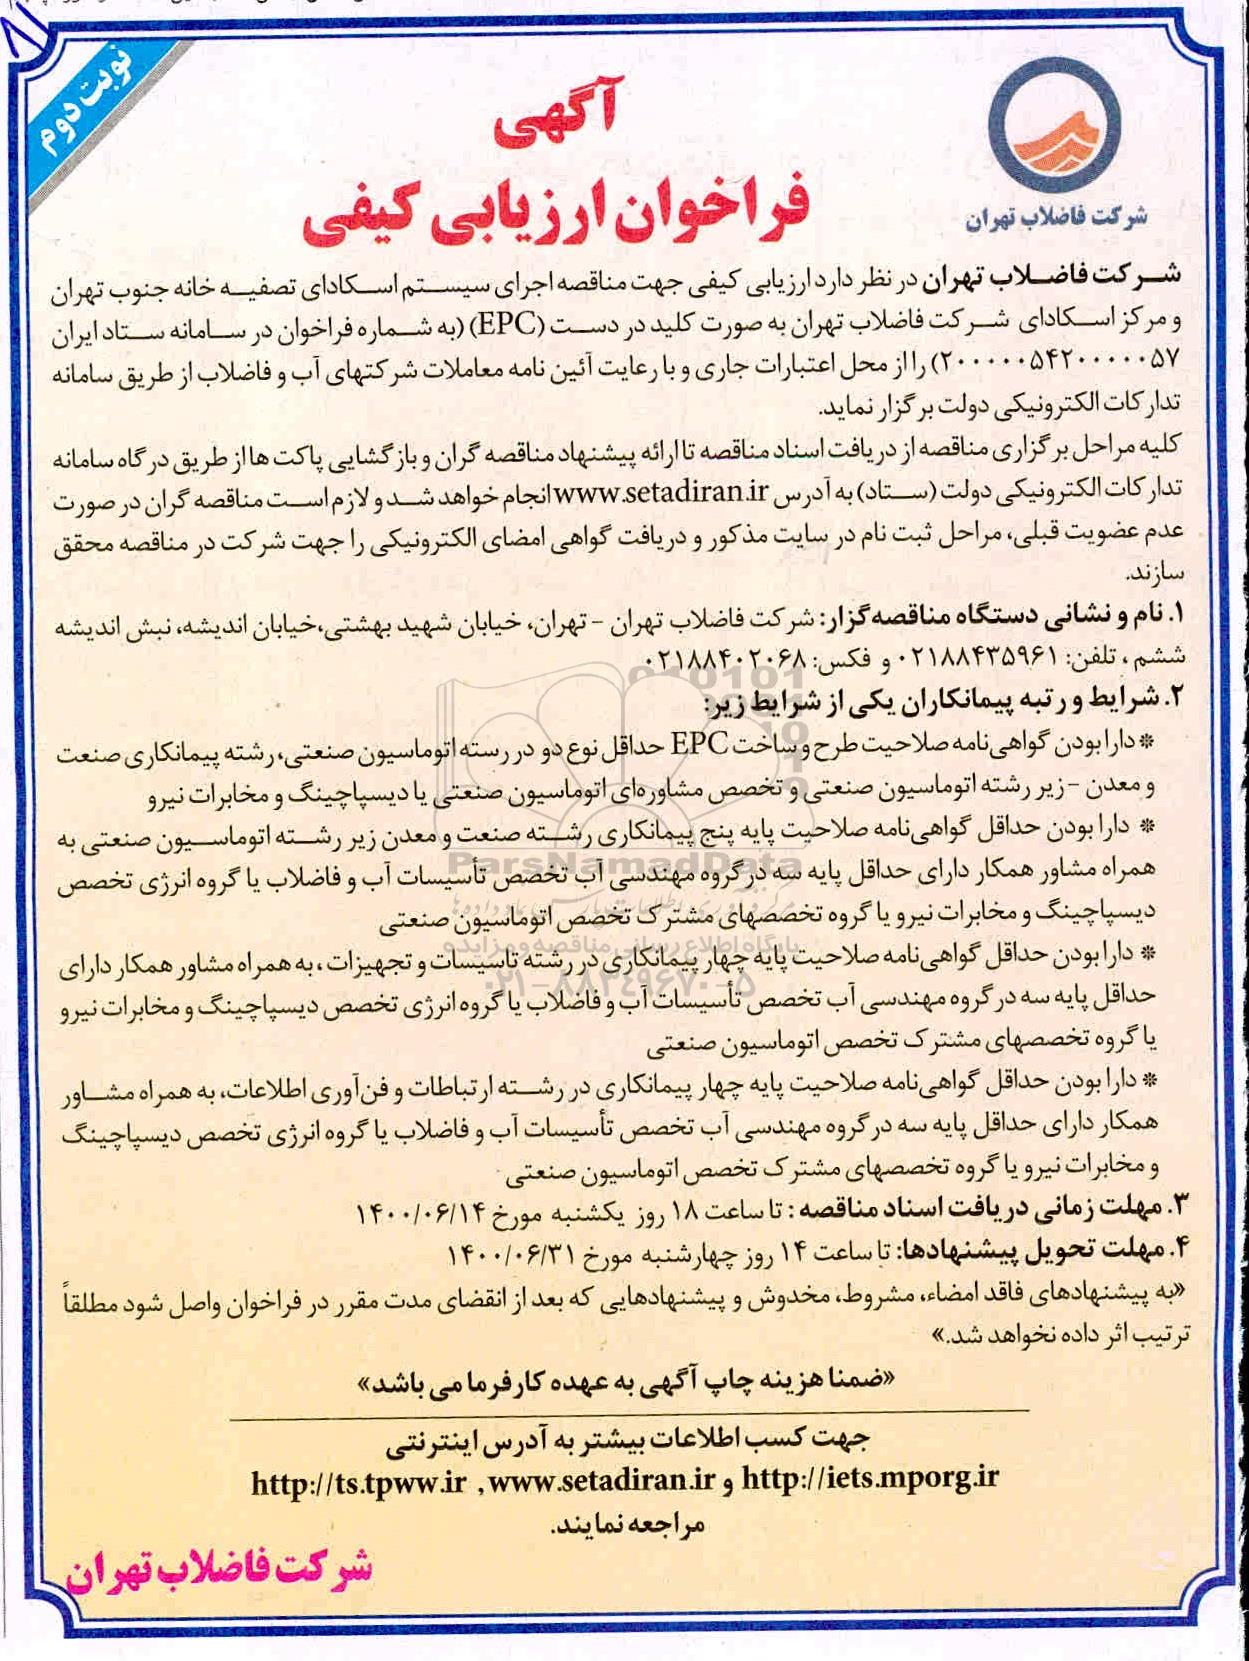 نوبت دوم
شرکت فاضلاب تهران
آگهی
فراخوان ارزیابی کیفی
شرکت فاضلاب تهران در نظر دارد ارزیابی کیفی جهت مناقصه اجرای سیستم اسکادای تصفیه خانه جنوب تهران
و مرکز اسکادای شرکت فاضلاب تهران به صورت کلید در دست (EPC) (به شماره فراخوان در سامانه ستاد ایران
۲۰۰۰۰۰۵۴۲۰۰۰۰۰۵۷) را از محل اعتبارات جاری و با رعایت آئین نامه معاملات شرکتهای آب و فاضلاب از طریق سامانه
تدارکات الکترونیکی دولت برگزار نماید.
کلیه مراحل برگزاری مناقصه از دریافت اسناد مناقصه تا ارائه پیشنهاد مناقصه گران و بازگشایی پاکت ها از طریق درگاه سامانه
تدارکات الکترونیکی دولت (ستاد) به آدرس www.setadiran.ir انجام خواهد شد و لازم است مناقصه گران در صورت
عدم عضویت قبلی، مراحل ثبت نام در سایت مذکور و دریافت گواهی امضای الکترونیکی را جهت شرکت در مناقصه محقق
سازند.
۱. نام و نشانی دستگاه مناقصه‌گزار: شرکت فاضلاب تهران - تهران، خیابان شهید بهشتی،خیابان اندیشه، نبش اندیشه
ششم ، تلفن: ۰۲۱۸۸۴۳۵۹۶۱ و فکس: ۰۲۱۸۸۴۰۲۰۶۸
۲. شرایط و رتبه پیمانکاران یکی از شرایط زیر:
* دارا بودن گواهی‌نامه صلاحیت طرح و ساخت EPC حداقل نوع دو در رسته اتوماسیون صنعتی، رشته پیمانکاری صنعت
و معدن - زیر رشته اتوماسیون صنعتی و تخصص مشاوره‌ای اتوماسیون صنعتی یا دیسپاچینگ و مخابرات نیرو
* دارا بودن حداقل گواهی‌نامه صلاحیت پایه پنج پیمانکاری رشته صنعت و معدن زیر رشته اتوماسیون صنعتی به
همراه مشاور همکار دارای حداقل پایه سه در گروه مهندسی آب تخصص تأسیسات آب و فاضلاب یا گروه انرژی تخصص
دیسپاچینگ و مخابرات نیرو یا گروه تخصصهای مشترک تخصص اتوماسیون صنعتی
* دارا بودن حداقل گواهی‌نامه صلاحیت پایه چهار پیمانکاری در رشته تاسیسات و تجهیزات ، به همراه مشاور همکار دارای
حداقل پایه سه در گروه مهندسی آب تخصص تأسیسات آب و فاضلاب یا گروه انرژی تخصص دیسپاچینگ و مخابرات نیرو
یا گروه تخصصهای مشترک تخصص اتوماسیون صنعتی
* دارا بودن حداقل گواهی‌نامه صلاحیت پایه چهار پیمانکاری در رشته ارتباطات و فن‌آوری اطلاعات، به همراه مشاور
همکار دارای حداقل پایه سه در گروه مهندسی آب تخصص تأسیسات آب و فاضلاب یا گروه انرژی تخصص دیسپاچینگ
و مخابرات نیرو یا گروه تخصصهای مشترک تخصص اتوماسیون صنعتی
۳. مهلت زمانی دریافت اسناد مناقصه : تا ساعت ۱۸ روز یکشنبه مورخ ۱۴۰۰/۰۶/۱۴
۴. مهلت تحویل پیشنهادها: تا ساعت ۱۴ روز چهارشنبه مورخ ۱۴۰۰/۰۶/۳۱
«به پیشنهادهای فاقد امضاء، مشروط، مخدوش و پیشنهادهایی که بعد از انقضای مدت مقرر در فراخوان واصل شود مطلقاً
ترتیب اثر داده نخواهد شد.»
«ضمنا هزینه چاپ آگهی به عهده کارفرما می باشد»
جهت کسب اطلاعات بیشتر به آدرس اینترنتی
http://iets.mporg.ir و www.setadiran.ir , http://ts.tpww.ir
مراجعه نمایند.
شرکت فاضلاب تهران
ParsNamadData
پایگاه اطلاع رسانی مناقصه و مزایده
۰۲۱-۸۸۳۴۹۶۷۰-۵